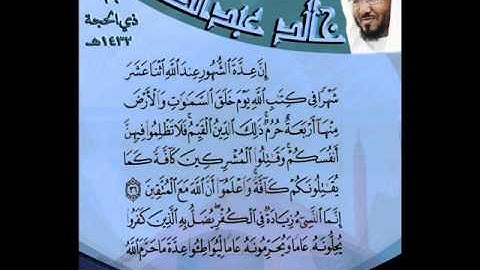 خالد عبدالله
ذي الحجة
١٤٣٣هـ
إِنَّ عِدَّةَ ٱلشُّهُورِ عِندَ ٱللَّهِ ٱثْنَا عَشَرَ
شَهْرًا فِى كِتَٰبِ ٱللَّهِ يَوْمَ خَلَقَ ٱلسَّمَٰوَٰتِ وَٱلْأَرْضَ
مِنْهَآ أَرْبَعَةٌ حُرُمٌ ۚ ذَٰلِكَ ٱلدِّينُ ٱلْقَيِّمُ ۚ فَلَا تَظْلِمُوا۟ فِيهِنَّ
أَنفُسَكُمْ ۚ وَقَٰتِلُوا۟ ٱلْمُشْرِكِينَ كَآفَّةً كَمَا
يُقَٰتِلُونَكُمْ كَآفَّةً ۚ وَٱعْلَمُوٓا۟ أَنَّ ٱللَّهَ مَعَ ٱلْمُتَّقِينَ ٣٦
إِنَّمَا ٱلنَّسِىٓءُ زِيَادَةٌ فِى ٱلْكُفْرِ ۖ يُضَلُّ بِهِ ٱلَّذِينَ كَفَرُوا۟
يُحِلُّونَهُۥ عَامًا وَيُحَرِّمُونَهُۥ عَامًا لِّيُوَاطِـُٔوا۟ عِدَّةَ مَا حَرَّمَ ٱللَّهُ